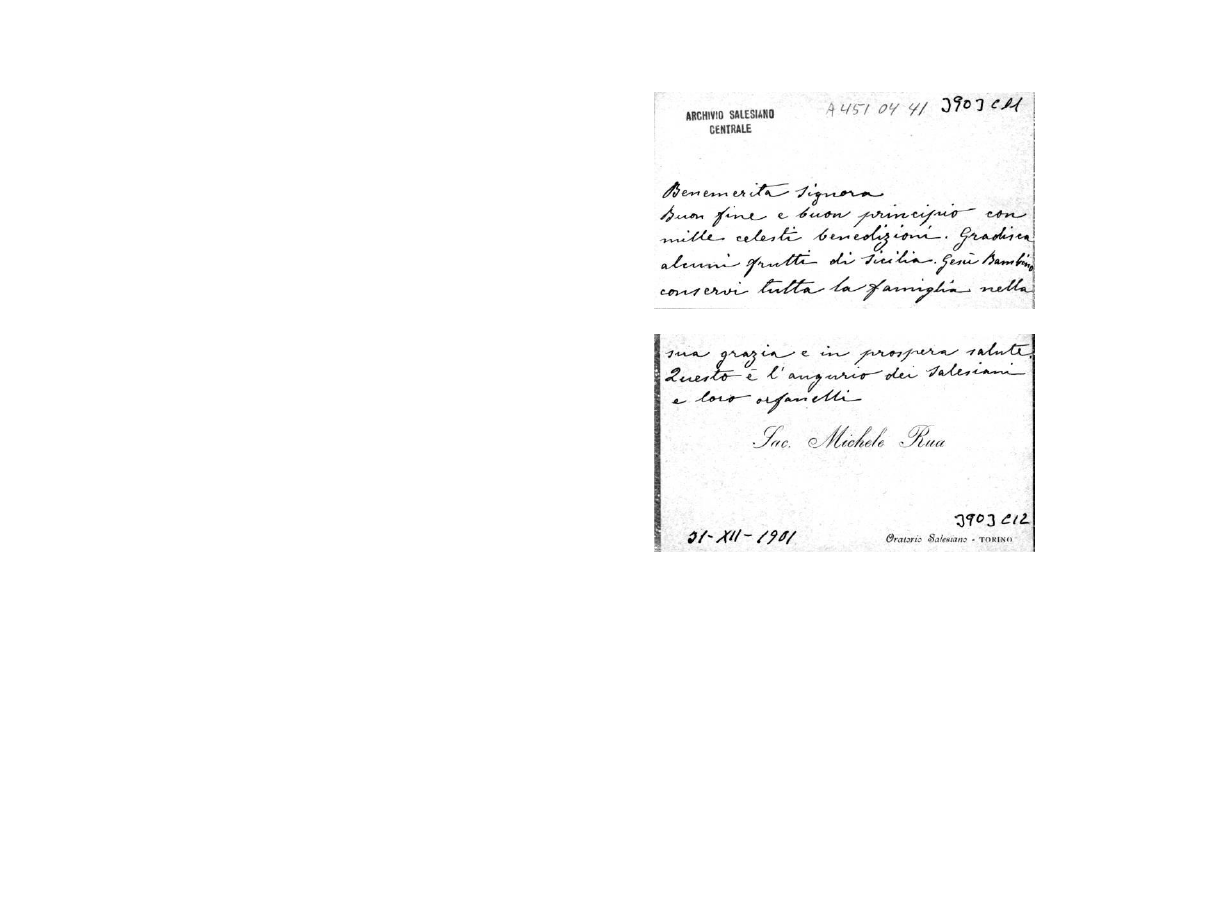 ARCHIVIO SALESIANO
CENTRALE
A 451 04 41 3903 C11
Benemerita Signora
Buon fine e buon principio con
mille celesti benedizioni. Gradisca
alcuni frutti di Sicilia. Gesù Bambino
conservi tutta la famiglia nella
sua grazia e in prospera salute.
Questo è l'angurio dei Salesiani
e loro orfanelli
Sac. Michele Rua
3903 C12
31-XII-1901
Oratorio Salesiano - TORINO